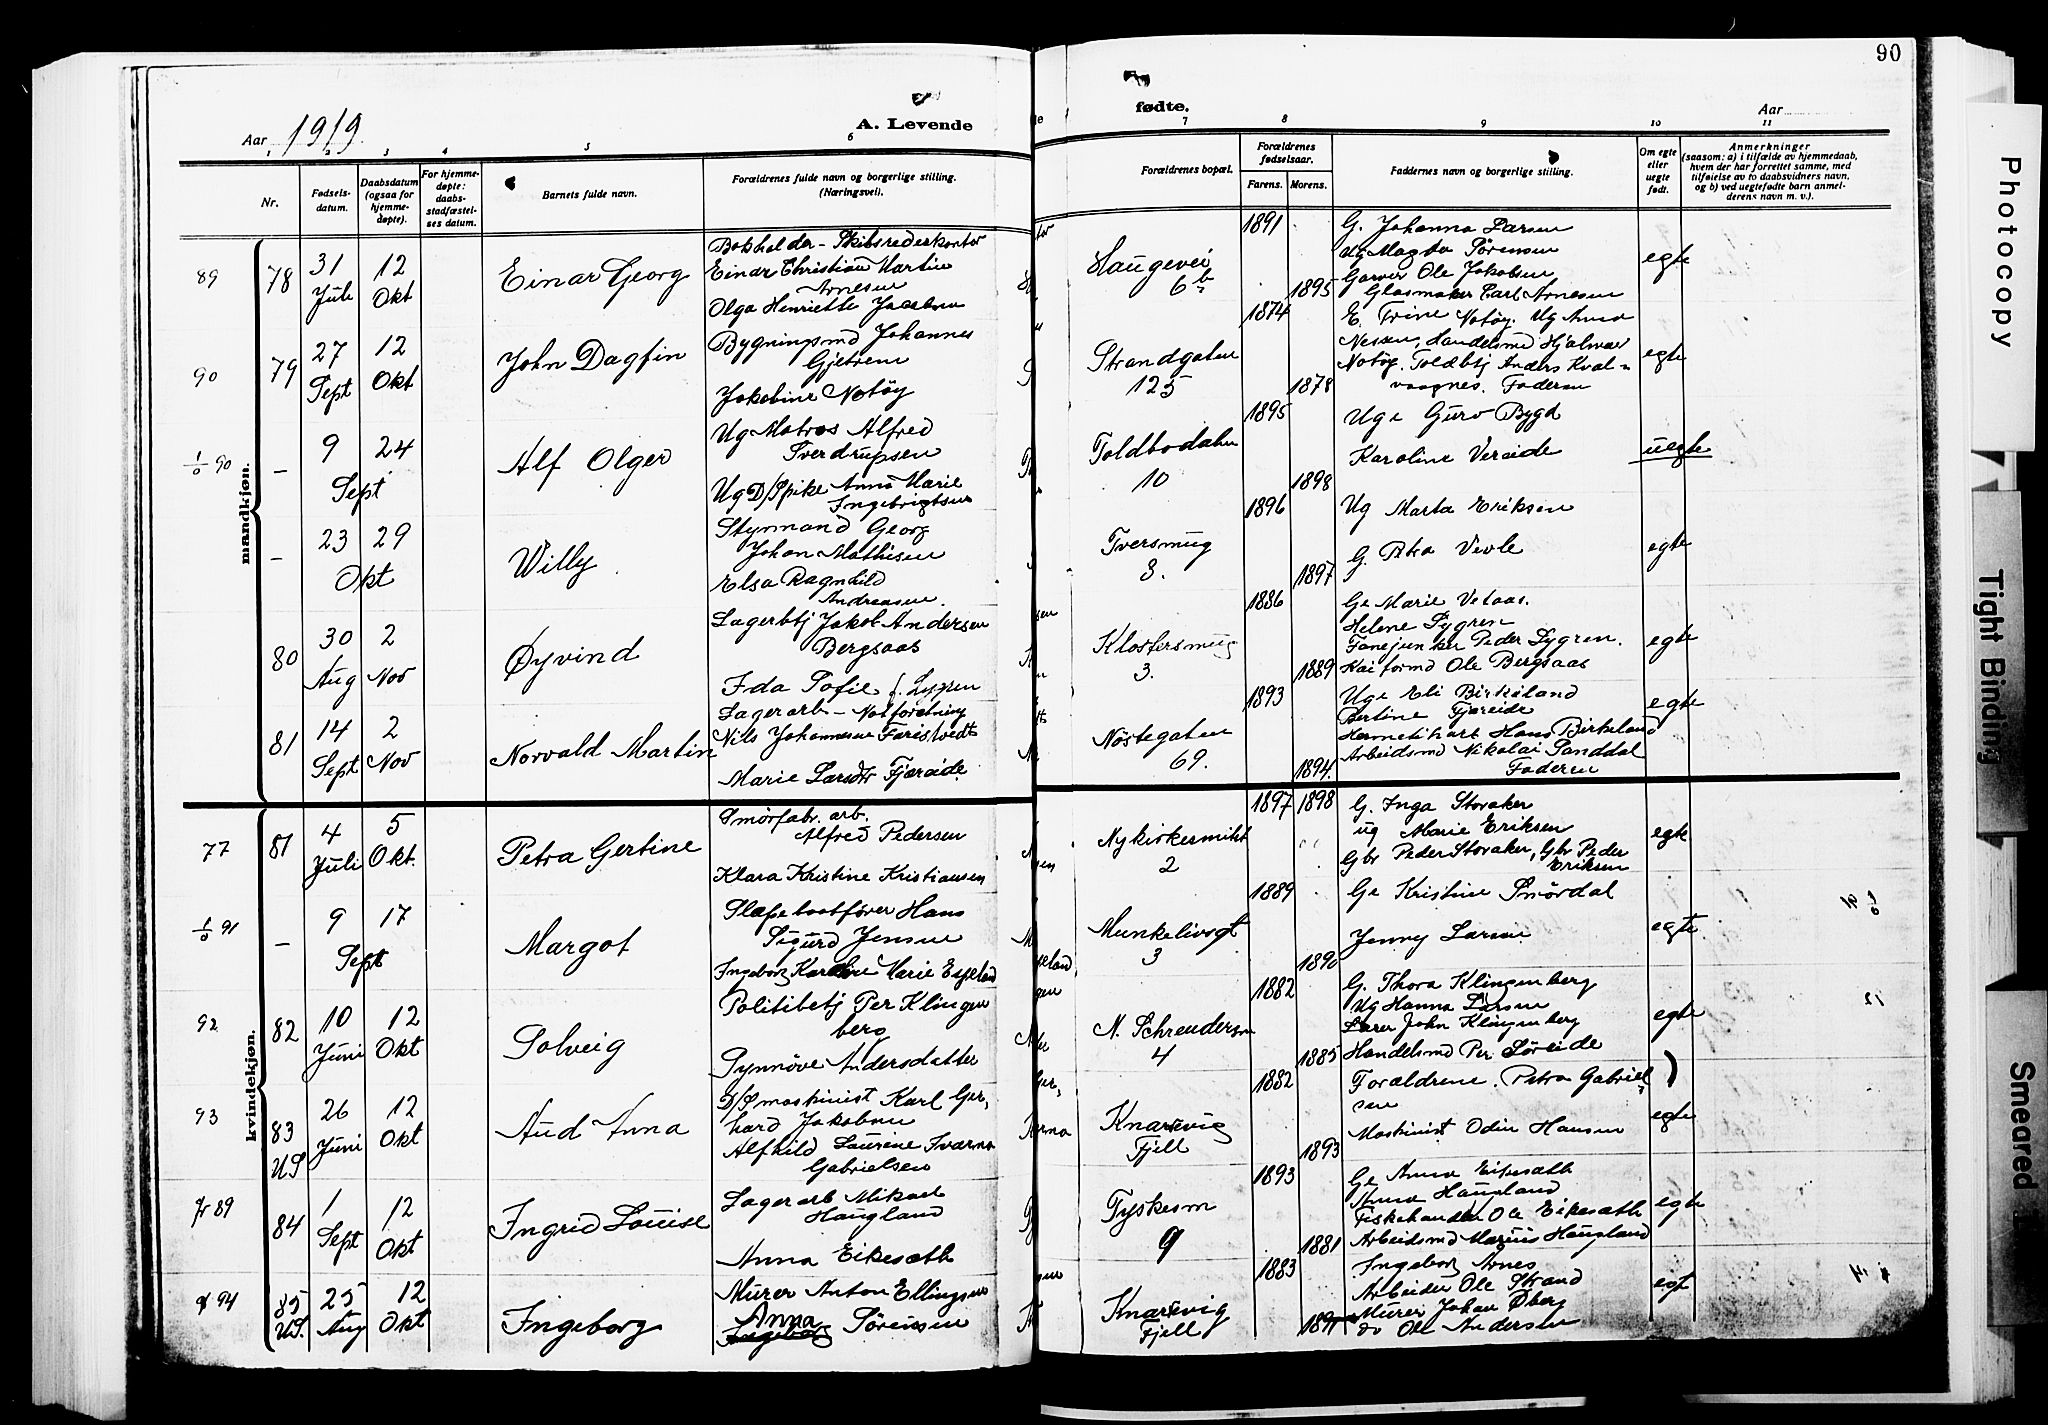 90
Aar 1919.
A. Levende
fødte.
Aar
1 2 3 4 5 6 7 8 9 10 11
Nr.
Fødselsdatum.
Daabsdatum (ogsaa for hjemmedøpte).
For hjemmedøpte: daabsstadfæstelses datum.
Barnets fulde navn.
Forældrenes fulde navn og borgerlige stilling. (Næringsvei).
Forældrenes bopæl.
Forældrenes fødselsaar.
Farens. Morens.
Faddernes navn og borgerlige stilling.
Om egte eller uegte født.
Anmerkninger
(saasom: a) i tilfælde av hjemmedaab,
hvem der har forrettet samme, med
tilføielse av to daabsvidners navn,
og b) ved uegtefødte barn anmelderens navn m. v.).
mandkjøn.
89 78 31 Juli 12 Okt
Einar Georg
Bokholder - Skibsrederkontor
Einar Christian Martin
Arnesen
Olga Henriette Jacobsen
Haugevei
6b
1891 1895
G. Johanna Larsen
Ug Magda Sørensen
Garver Ole Jakobsen
Glasmaker Carl Arnesen
egte
90 79 27 Sept 12 Okt
John Dagfin
Bygningsmd Johannes
Gjetrem
Jakobine Notøy
Strandgaten
125
1874 1878
E. Trine Notøy. Ug Anna
Nessen, Handelsmd Hjalmar
Notøy. Toldbtj Anders Kval-
vaagnes. Faderen
egte
90 - 9 24 Sept
Alf Olger
Ug Matros Alfred
Sverdrupsen
Ug D/Spike Anna Marie
Ingebrigtsen
Toldbodalm
10
1895 1898
Uge Guro Bygd
Karoline Veraide
uegte
- 23 29 Okt
Willy
Styrmand Georg
Johan Mathisen
Elsa Ragnhild
Andreasen.
Tversmug
3.
1896 1897
Ug Marta Eriksen
G. Petra Vevle
egte
80 30 Aug 2 Nov
Øyvind
Lagerbtj Jakob Andersen
Bergsaas
Ida Sofie f. Lygren
Klostersmug
3.
1886 1889
Ge Marie Vetaas.
Helene Lygren
Fanejunker Peder Lygren.
Kaiformd Ole Bergsaas
egte
81 14 Sept 2 Nov
Norvald Martin
Lagerarb - Notforretning
Nils Johannesen Farestvedt
Marie Larsdtr Fjæreide
Nöstegaten
69.
1893 1894.
Uge Eli Birkeland
Bertine Fjæreide
Hermetikarb Hans Birkeland
Arbeidsmd Nikolai Sanddal
Faderen
egte
kvindekjøn.
77 81 4 Juli 5 Okt.
Petra Gertine
Smörfabr. arb.
Alfred Pedersen
Klara Kristine Kristiansen
Nykirkesmitt
2
1897 1898
G. Inga Storaker
ug Marie Eriksen
Gbr Peder Storaker, Gbr Peder
Eriksen
egte
91 - 9 17 Sept
Margot
Slæpebaatfører Hans
Sigurd Jensen
Ingeborg Karoline Marie Espeland
Munkelivsgt
3
1889 1890
Ge Kristine Smördal
Jenny Larsen
egte
92 82 10 Juni 12 Okt
Solveig
Politibetj Per Klingen
berg
Synnöve Andersdatter
N. Schreudersm
4
1882 1885
G. Thora Klingenberg
Ug Hanna Larsen
Lærer John Klingenberg
Handelsmd Per Söreide
egte
93 83 US 26 Juni 12 Okt
Aud Anna
D/S maskinist Karl Ger,
hard Jakobsen
Alfhild Laurene Ivarna
Gabrielsen
Knarrevig
Fjell
1882 1893
Forældrene. Petra Gabriel-
sen
Maskinist Odin Hansen
egte
89 84 1 Sept 12 Okt
Ingrid Louise
Lagerarb Mikael
Haugland
Anna Eikesæth
Tyskesm
9
1893 1881
Ge Anna Eikesæth
Anna Haugland
Fiskehandler Ole Eikesæth
Arbeidsmd Magnus Haugland
egte
94 85 US. 25 Aug 12 Okt
Ingeborg
Murer Anton Ellingsen
Anna Sörensen
Ingeborg
Knarrevig
Fjell
1883 1891
Ingeborg Arnes
Arbeider Ole Strand
Murer Johan Öberg
do Ole Andersen
egt
Photocopy
Tight Binding
Smeared